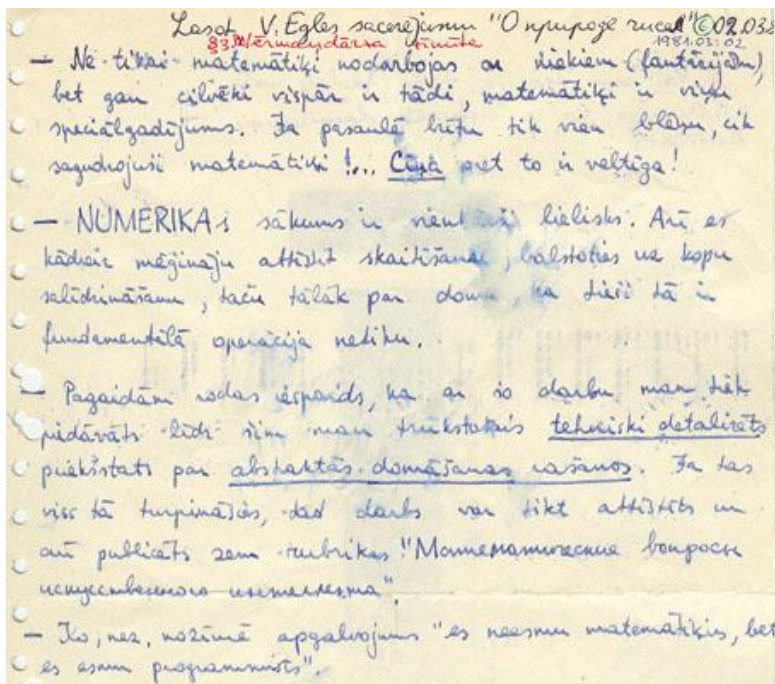 Lasot V. Egles sacerējumu "О природе чисел" ©02.03§
1981.03.02
— Ne tikai matemātiķi nodarbojas ar niekiem (fantāzijām),
bet gan cilvēki vispār ir tādi, matemātiķi ir viņu
speciālgadījums. Ja pasaulē būtu tik vien blēņu, cik
sagudrojuši matemātiķi!... Cīņa pret to ir veltīga!
— NUMERIKAs sākums ir vienkārši lielisks. Arī es
kādreiz mēģināju attīstīt skaitīšanu, balstoties uz kopu
salīdzināšanu, taču tālāk par domu, ka tieši tā ir
fundamentālā operācija netiku.
— Pagaidām rodas iespaids, ka ar šo darbu man tiek
piedāvāts līdz šim man trūkstošais tehniski detalizēts
priekšstats par abstraktās domāšanas rašanos. Ja tas
viss tā turpināsies, tad darbs var tikt attīstīts un
arī publicēts zem rubrikas "Математические вопросы
искусственного интеллекта".
— Ko, nez, nozīmē apgalvojums "es neesmu matemātiķis, bet
es esmu programmists".